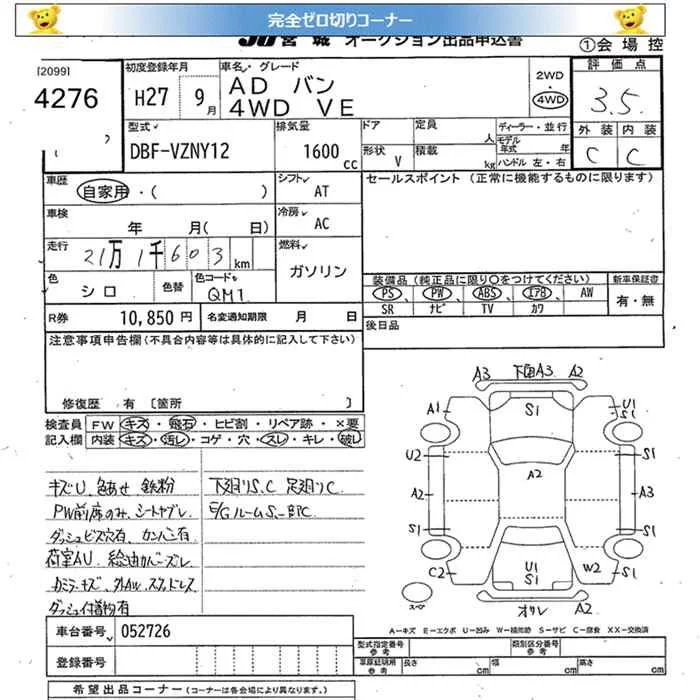 完全ゼロ切りコーナー
JU宮城 オークション出品申込書
①会場控
[2099]
4276
初度登録年月
H27 9月
車名・グレード
AD バン
4WD VE
2WD
4WD
評価点
3.5
外装 内装
C C
型式
DBF-VZNY12
排気量
1600 cc
ドア
形状 V
定員 人
積載 kg
ディーラー・並行
モデル年式 年
ハンドル 左・右
車歴
自家用・( )
シフト
AT
セールスポイント (正常に機能するものに限ります)
車検
年 月( 日)
冷房
AC
走行
21万1千603km
燃料
ガソリン
色
シロ
色替
色コード
QM1
装備品 (純正品に限り○をつけてください)
PS PW ABS エアB AW
SR ナビ TV カワ
新車保証書
有・無
R券 10,850円
名変通知期限 月 日
後日品
注意事項申告欄(不具合内容等は具体的に記入して下さい)
修復歴 有 [箇所 ]
検査員記入欄
FW キズ・飛石・ヒビ割・リペア跡・×要
内装 キズ・汚レ・コゲ・穴・スレ・キレ・破レ
キズU、色あせ、鉄粉
PW前席のみ、シートヤブレ
ダッシュビス穴有、カンバン有
荷室AU、給油カバーズレ
カミラーキズ、外AW、スタッドレス
ダッシュ付着物有
下廻りS、C 足廻りC
E/GルームS一部C
A3 下回A3 A2
A1 S1 U1 S1
U2 S1
A2 A2 A3
S1 S1
C2 U1 S1 W2 S1
スペア
オサレ A2
A-キズ E-エクボ U-凹み W-補修跡 S-サビ C-腐食 XX-交換済
車台番号 052726
登録番号
型式指定番号 参考
類別区分番号 参考
車庫証明用 参考
長さ cm 幅 cm 高さ cm
希望出品コーナー (コーナーは各会場により異なります。)